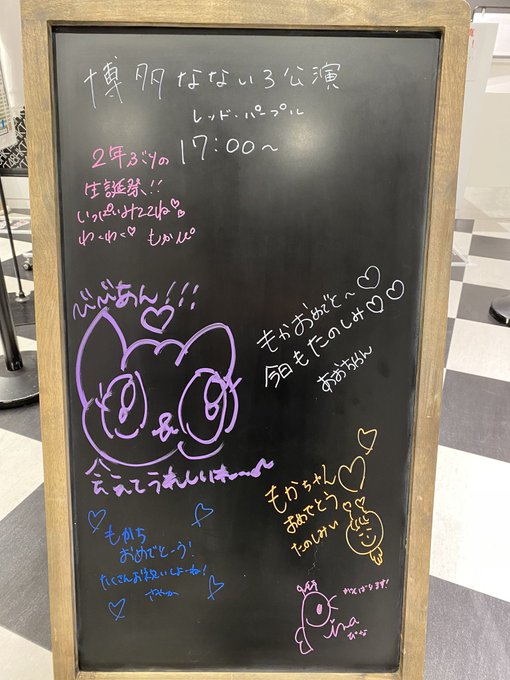 博多なないろ公演
レッド・パープル
17:00〜
2年ぶりの
生誕祭!!
いっぱいみててね♡
わくわく♡ もか
びびあん!!!
会えてうれしいねーー
もかおめでと〜♡
今日もたのしみ♡♡
おおちゃん
もかちゃん♡
おめでとう
たのしみい
もかち
おめでとーう!
たくさんお祝いしよーね!
がんばります!
ina